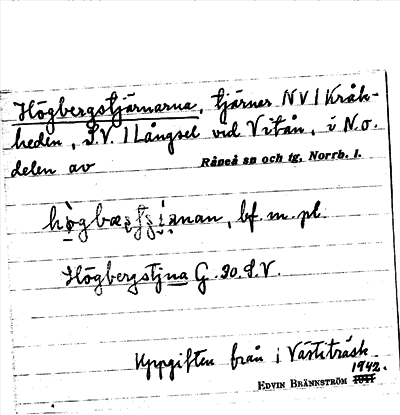 Högbergstjärnarna, tjärner NV / Kråk-
heden, S.V. / Långsel vid Vitån, i N.O.
delen av Råneå sn och tg, Norrb. l.
bf. m. pl.
Högbergstjna G. 30. S.V.
Uppgiften från i Västiträsk
1942.
EDVIN BRÄNKSTRÖM 1941